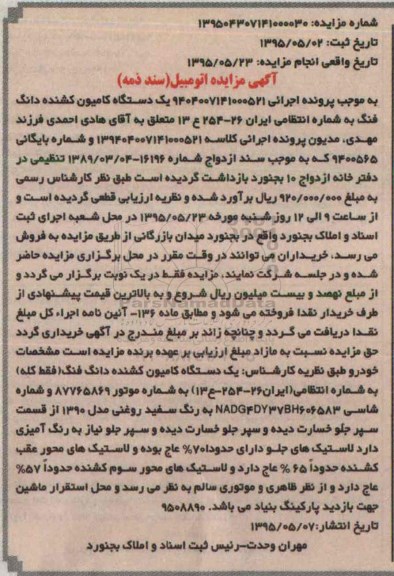 شماره مزایده: ۱۳۹۵۰۴۳۰۷۱۴۱۰۰۰۰۳۰
تاریخ ثبت: ۱۳۹۵/۰۵/۰۲
تاریخ واقعی انجام مزایده: ۱۳۹۵/۰۵/۲۳
آگهی مزایده اتومبیل(سند ذمه)
به موجب پرونده اجرائی ۹۴۰۴۰۰۷۱۴۱۰۰۰۵۲۱ یک دستگاه کامیون کشنده دانگ
فنگ به شماره انتظامی ایران ۲۶-۲۵۴ ع ۱۳ متعلق به آقای هادی احمدی فرزند
مهدی، مدیون پرونده اجرائی کلاسه ۱۳۹۴۰۴۰۰۷۱۴۱۰۰۰۵۲۱ و شماره بایگانی
۹۴۰۰۵۶۵ که به موجب سند ازدواج شماره ۱۶۱۹۶-۱۳۸۹/۰۳/۰۴ تنظیمی در
دفتر خانه ازدواج ۱۰ بجنورد بازداشت گردیده است طبق نظر کارشناس رسمی
به مبلغ ۹۲۰/۰۰۰/۰۰۰ ریال برآورد شده و نظریه ارزیابی قطعی گردیده است و
از ساعت ۹ الی ۱۲ روز شنبه مورخه ۱۳۹۵/۰۵/۲۳ در محل شعبه اجرای ثبت
اسناد و املاک بجنورد واقع در بجنورد میدان بازرگانی از طریق مزایده به فروش
می رسد، خریداران می توانند در وقت مقرر در محل برگزاری مزایده حاضر
شده و در جلسه شرکت نمایند. مزایده فقط در یک نوبت برگزار می گردد و
از مبلغ نهصد و بیست میلیون ریال شروع و به بالاترین قیمت پیشنهادی از
طرف خریدار نقدا فروخته می شود و مطابق ماده ۱۳۶- آئین نامه اجراء کل مبلغ
نقدا دریافت می گردد و چنانچه زائد بر مبلغ مندرج در آگهی خریداری گردد
حق مزایده نسبت به مازاد مبلغ ارزیابی بر عهده برنده مزایده است مشخصات
خودرو طبق نظریه کارشناس: یک دستگاه کامیون کشنده دانگ فنگ(فقط کله)
به شماره انتظامی(ایران۲۶-۲۵۴-ع۱۳) به شماره موتور ۸۷۷۶۵۸۶۹ و شماره
شاسی NADG۴DY۳۷BH۶۰۶۵۸۳ به رنگ سفید روغنی مدل ۱۳۹۰ از قسمت
سپر جلو خسارت دیده و سپر جلو خسارت دیده و سپر جلو نیاز به رنگ آمیزی
دارد لاستیک های جلو دارای حدودا۷۰% عاج بوده و لاستیک های محور عقب
کشنده حدوداً ۶۵ % عاج دارد و لاستیک های محور سوم کشنده حدوداً ۵۷%
عاج دارد و از نظر ظاهری و موتوری سالم به نظر می رسد و محل استقرار ماشین
جهت بازدید پارکینگ بنیاد می باشد. ۹۵۰۸۸۹۰
تاریخ انتشار:۱۳۹۵/۰۵/۰۷
مهران وحدت-رئیس ثبت اسناد و املاک بجنورد
ParsNamadData